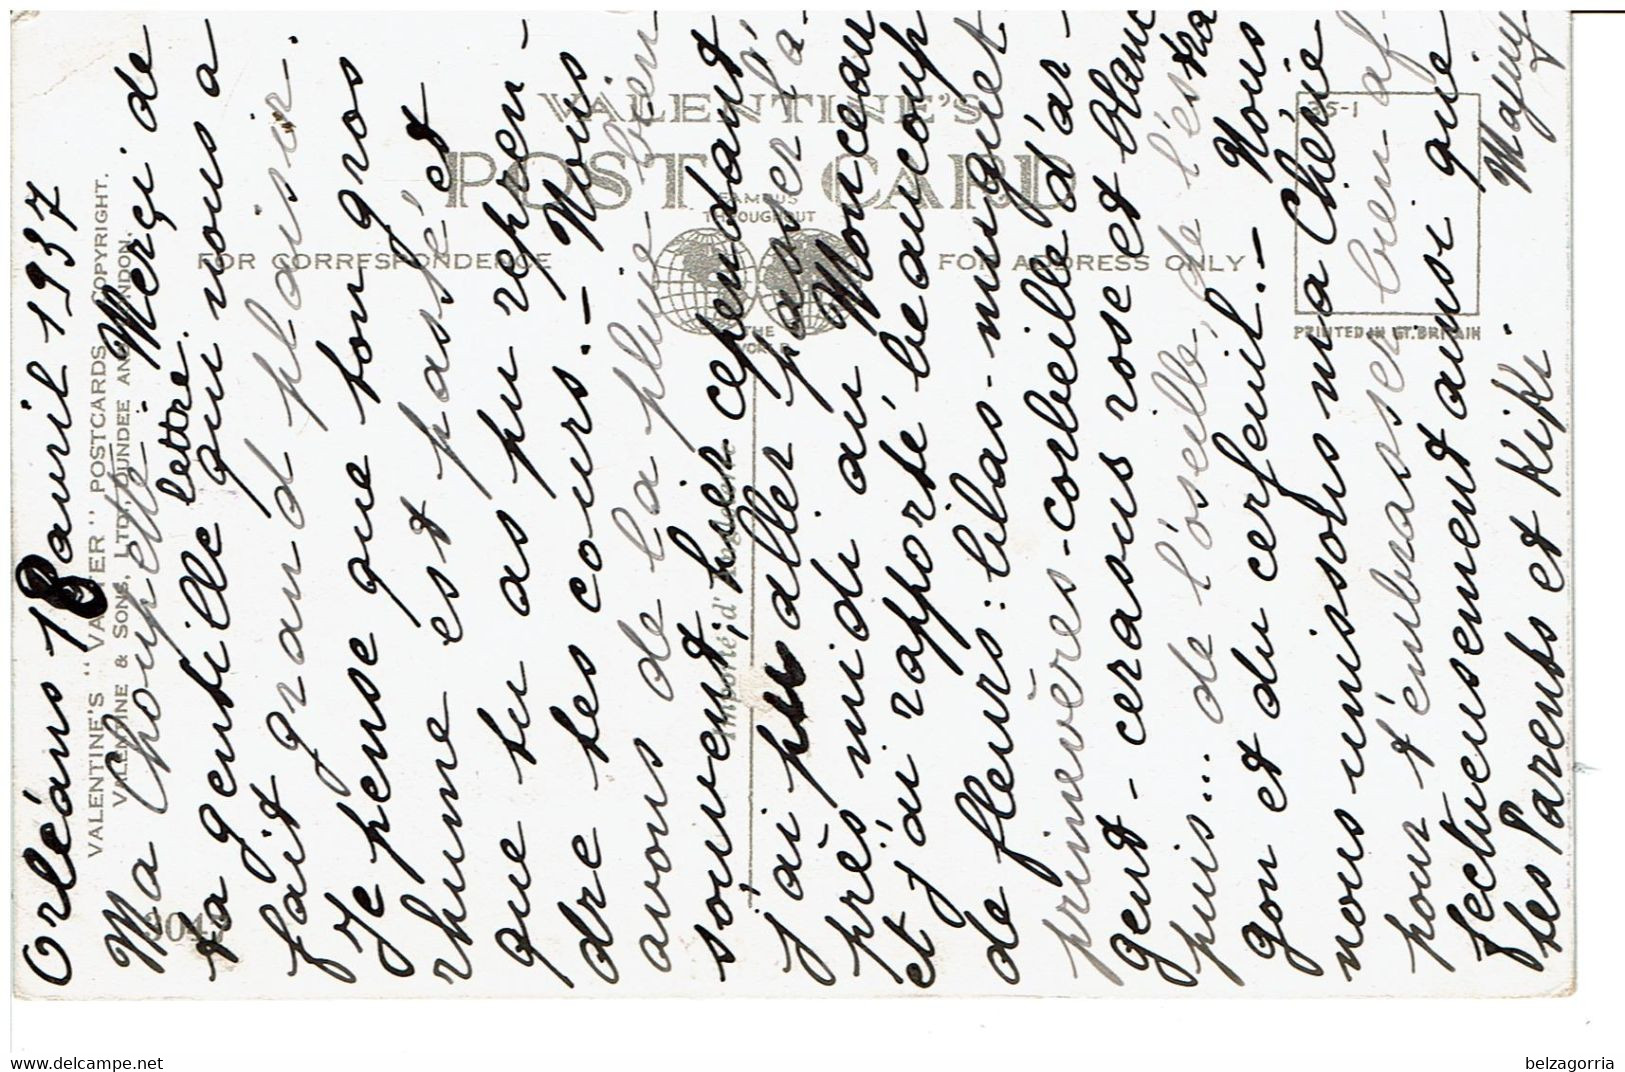 Orléans 18 avril 1937
Ma Choupette - Merçi de
ta gentille lettre qui nous a
fait grand plaisir.
Je pense que ton gros
rhume est passé et
que tu as pu repren-
dre tes cours. - Nous
avons de la pluie bien
souvent, hier cependant
j'ai pu aller passer l'a-
près midi au Monceau
et j'ai rapporté beaucoup
de fleurs: lilas - muguet
primevères - corbeille d'ar-
gent - cerasus rose et blanc
puis... de l'oseille, de l'estra
gon et du cerfeuil. - Nous
nous unissons ma Chérie
pour t'embrasser bien af-
fectueusement ainsi que
tes Parents et Kiki.
VALENTINE'S "VALTER" POSTCARDS COPYRIGHT.
VALENTINE & SONS, LTD., DUNDEE AND LONDON.
VALENTINE'S
POST CARD
FAMOUS
THROUGHOUT
THE
WORLD
FOR CORRESPONDENCE
FOR ADDRESS ONLY
Importé d'Angleterre
35-1
PRINTED IN GT. BRITAIN
belzagorria
https://www.delcampe.net